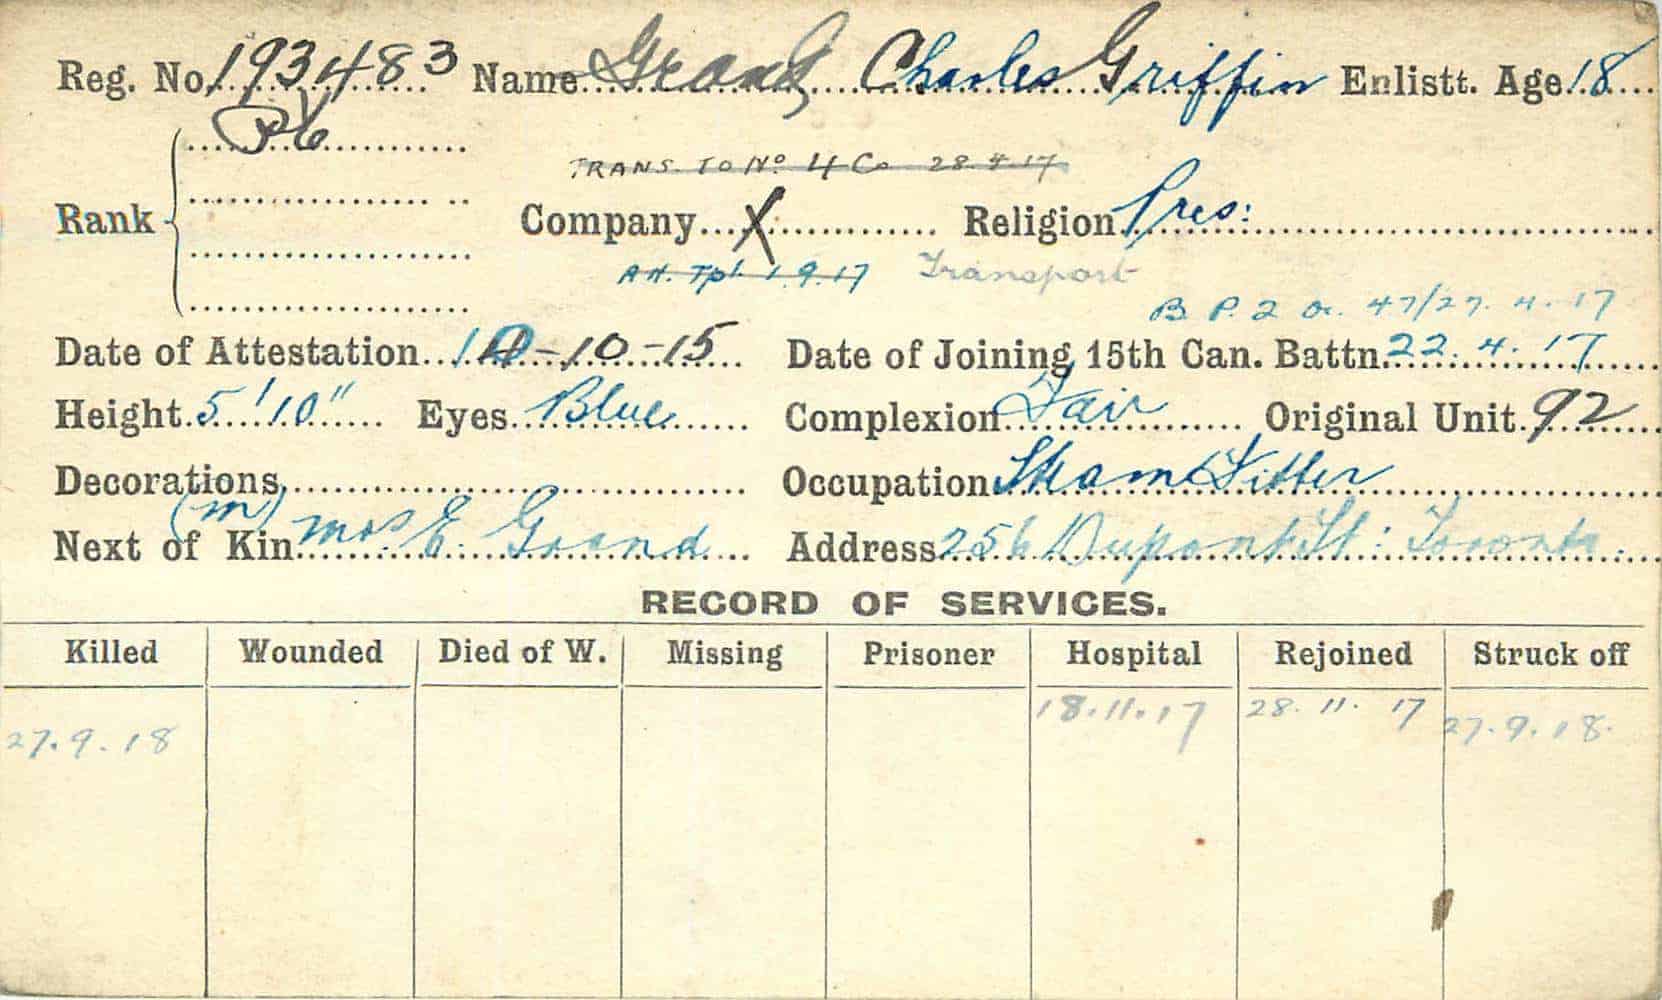 Reg. No. 193483 Name Grand Charles Griffin Enlistt. Age 18
Pte
TRANS. TO No. 4 Co 28.4.17
Rank Company X Religion Pres:
Att. Tpt. 1.9.17 Transport
B P. 2 O. 47/27.4.17
Date of Attestation -10-15 Date of Joining 15th Can. Battn. 22.4.17
Height 5'10" Eyes Blue Complexion Fair Original Unit 92
Decorations Occupation Steam Fitter
(m)
Next of Kin Mrs E. Grand Address 256 Dupont St: Toronto.
RECORD OF SERVICES.
Killed Wounded Died of W. Missing Prisoner Hospital Rejoined Struck off
27.9.18 18.11.17 28.11.17 27.9.18.